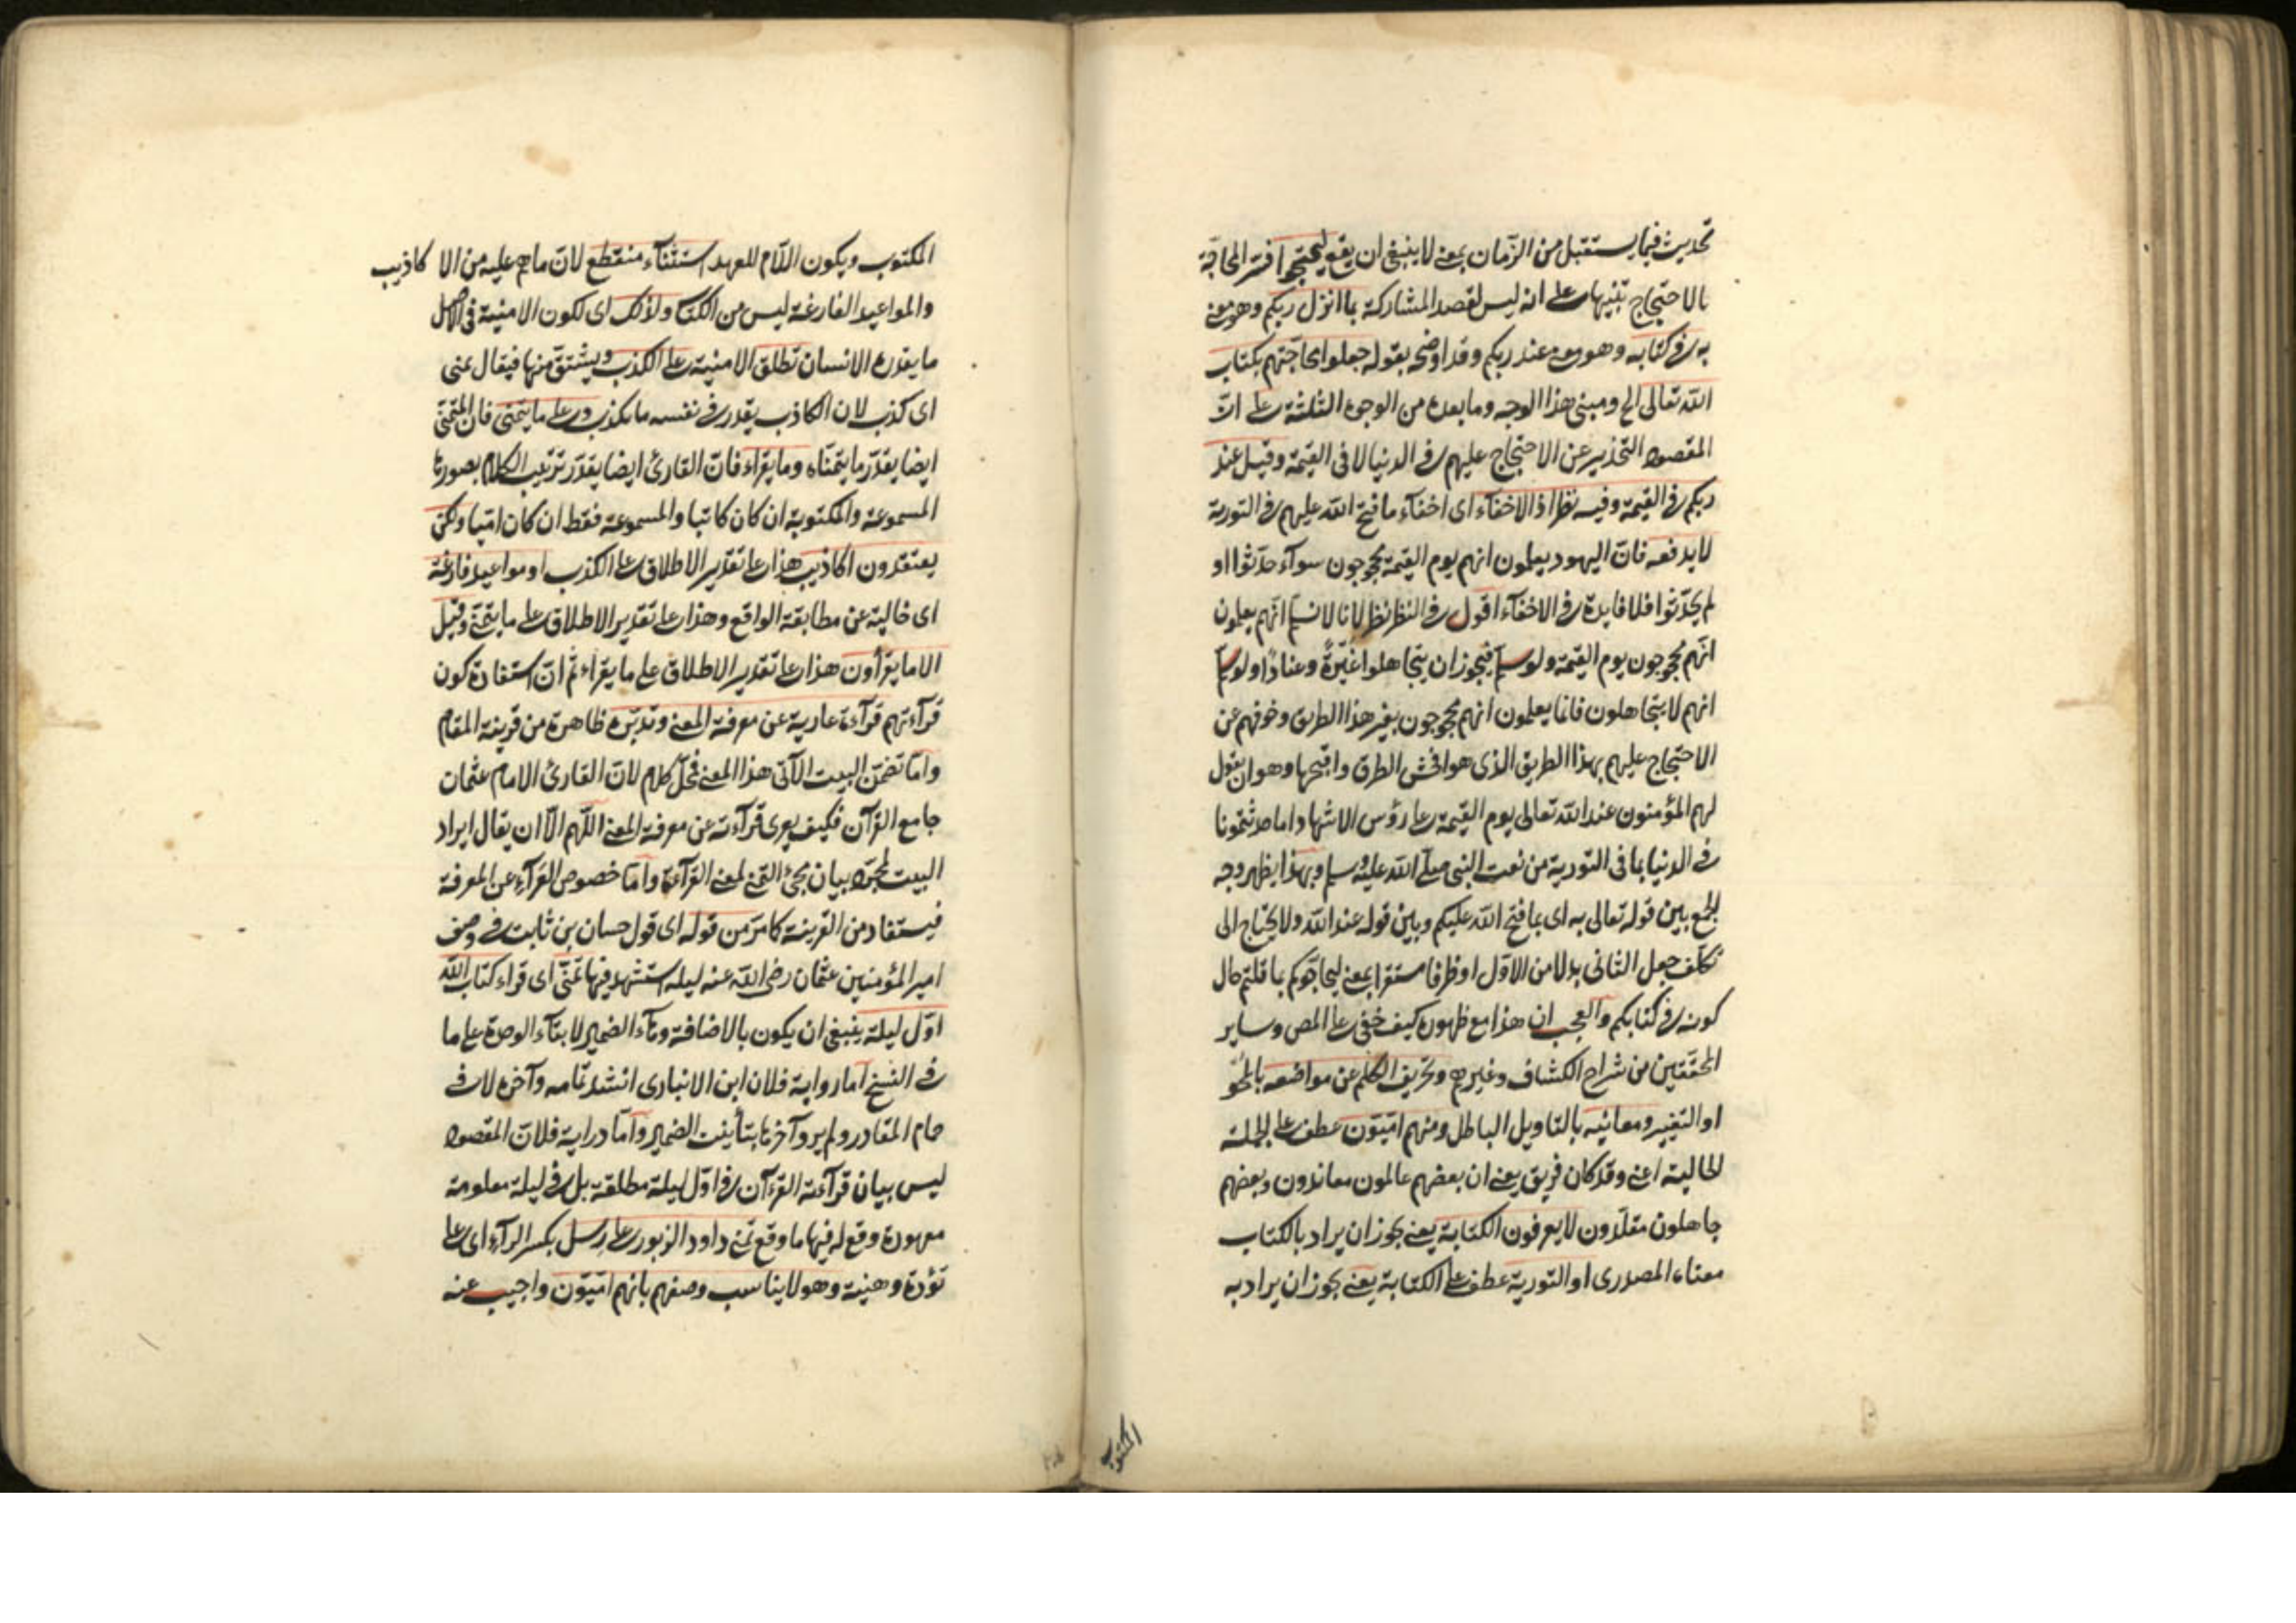 تحديث فيما يستقبل من الزمان بمعنى لا ينبغى ان يقع ليحتجوا فسر المحاجّة
بالاحتجاج تنبيها على انه ليس لقصد المشاركة بما انزل ربكم وهو معنى
به فى كتابه وهو معنى عند ربكم وقد اوضحه بقوله جعلوا محاجتهم بكتاب
الله تعالى الخ ومبنى هذا الوجه وما بعده من الوجوه الثلثة على انّ
المقصود التحذير عن الاحتجاج عليهم فى الدنيا لا فى القيمة وقيل عند
ربكم فى القيمة وفيه نظر اذ الاخفاء اى اخفاء ما فتح الله عليهم فى التورية
لا يدفعه فانّ اليهود يعلمون انهم يوم القيمة محجوجون سوآء حدّثوا او
لم يحدّثوا فلا فايدة فى الاخفآء اقول فى النظر نظر لانا لا نسلم انّهم يعلمون
انّهم محجوجون يوم القيمة ولو سلم فيجوز ان يتجاهلوا غيرةً وعنادًا ولو سلم
انهم لا يتجاهلون فانما يعلمون انهم محجوجون بغير هذا الطريق وخوفهم عن
الاحتجاج عليهم بهذا الطريق الذى هو افحش الطرق واقبحها وهو ان يقول
لهم المؤمنون عند الله تعالى يوم القيمة على رؤس الاشهاد اما حدثتمونا
فى الدنيا بما فى التورية من نعت النبى صلى الله عليه وسلم وبهذا يظهر وجه
الجمع بين قوله تعالى به اى بما فتح الله عليكم وبين قوله عند الله ولا يحتاج الى
تكلف جعل الثانى بدلا من الاوّل او ظرفا مستقرا بمعنى ليحاجّوكم بما قلتم حال
كونه فى كتابكم والعجب ان هذا مع ظهوره كيف خفى على المص وساير
المحققين من شراح الكشاف وغيرهم وتحريف الكلم عن مواضعه بالمحو
او التغيير ومعانيه بالتاويل الباطل ومنهم امّيّون عطف على الجملة
الحالية اعنى وقد كان فريق يعنى ان بعضهم عالمون معاندون وبعضهم
جاهلون مقلّدون لا يعرفون الكتابة يعنى يجوز ان يراد بالكتاب
معناه المصدرى او التورية عطف على الكتابة يعنى يجوز ان يراد به
المكتوب
المكتوب ويكون اللّام للعهد استثنآء منقطع لانّ ما هم عليه من الاكاذيب
والمواعيد الفارغة ليس من الكتاب ولذلك اى لكون الامنية فى الاصل
ما يقدره الانسان تطلق الامنية على الكذب ويشتقّ منها فيقال تمنى
اى كذب لان الكاذب يقدر فى نفسه ما يكذب وعلى ما يتمنى فان المتمنّى
ايضا يقدّر ما يتمنّاه وما يقرأ فانّ القارئ ايضا يقدّر ترتيب الكلام بصورته
المسموعة والمكتوبة ان كان كاتبا والمسموعة فقط ان كان امّيا ولكن
يعتقدون اكاذيب هذا على تقدير الاطلاق على الكذب او مواعيد فارغة
اى خالية عن مطابقة الواقع وهذا على تقدير الاطلاق على ما يتمنّى وقيل
الا ما يقرأون هذا على تقدير الاطلاق على ما يقراء ثم انّ استفادة كون
قرآءتهم قرآءة عارية عن معرفة المعنى وتدبّره ظاهرة من قرينة المقام
وامّا تضمّن البيت الآتى هذا المعنى فمحلّ كلام لانّ القارئ الامام عثمان
جامع القرآن فكيف يعرى قرآءته عن معرفة المعنى اللّهم الّا ان يقال ايراد
البيت لمجرّد بيان مجئ التمنى لمعنى القرآءة وامّا خصوص القرآءة عن المعرفة
فيستفاد من القرينة كما مرّ من قوله اى قول حسان بن ثابت فى وصف
امير المؤمنين عثمان رضى الله عنه ليلة استشهد فيها تمنّى اى قراء كتاب الله
اوّل ليلة ينبغى ان يكون بالاضافة وهآء الضمير لا بتآء الوحدة على ما
فى النسخ اما رواية فلان ابن الانبارى انشد تمامه وآخره لاقى
حمام المقادر ولم يرو آخرها بتأنيث الضمير وامّا دراية فلانّ المقصود
ليس بيان قرآءة القرآن فى اوّل ليلة مطلقة بل فى ليلة معلومة
معهودة وقع له فيها ما وقع تمنى داود الزبور على رسل بكسر الرآء اى على
تؤدة وهنية وهو لا يناسب وصفهم بانهم امّيّون واجيب عنه